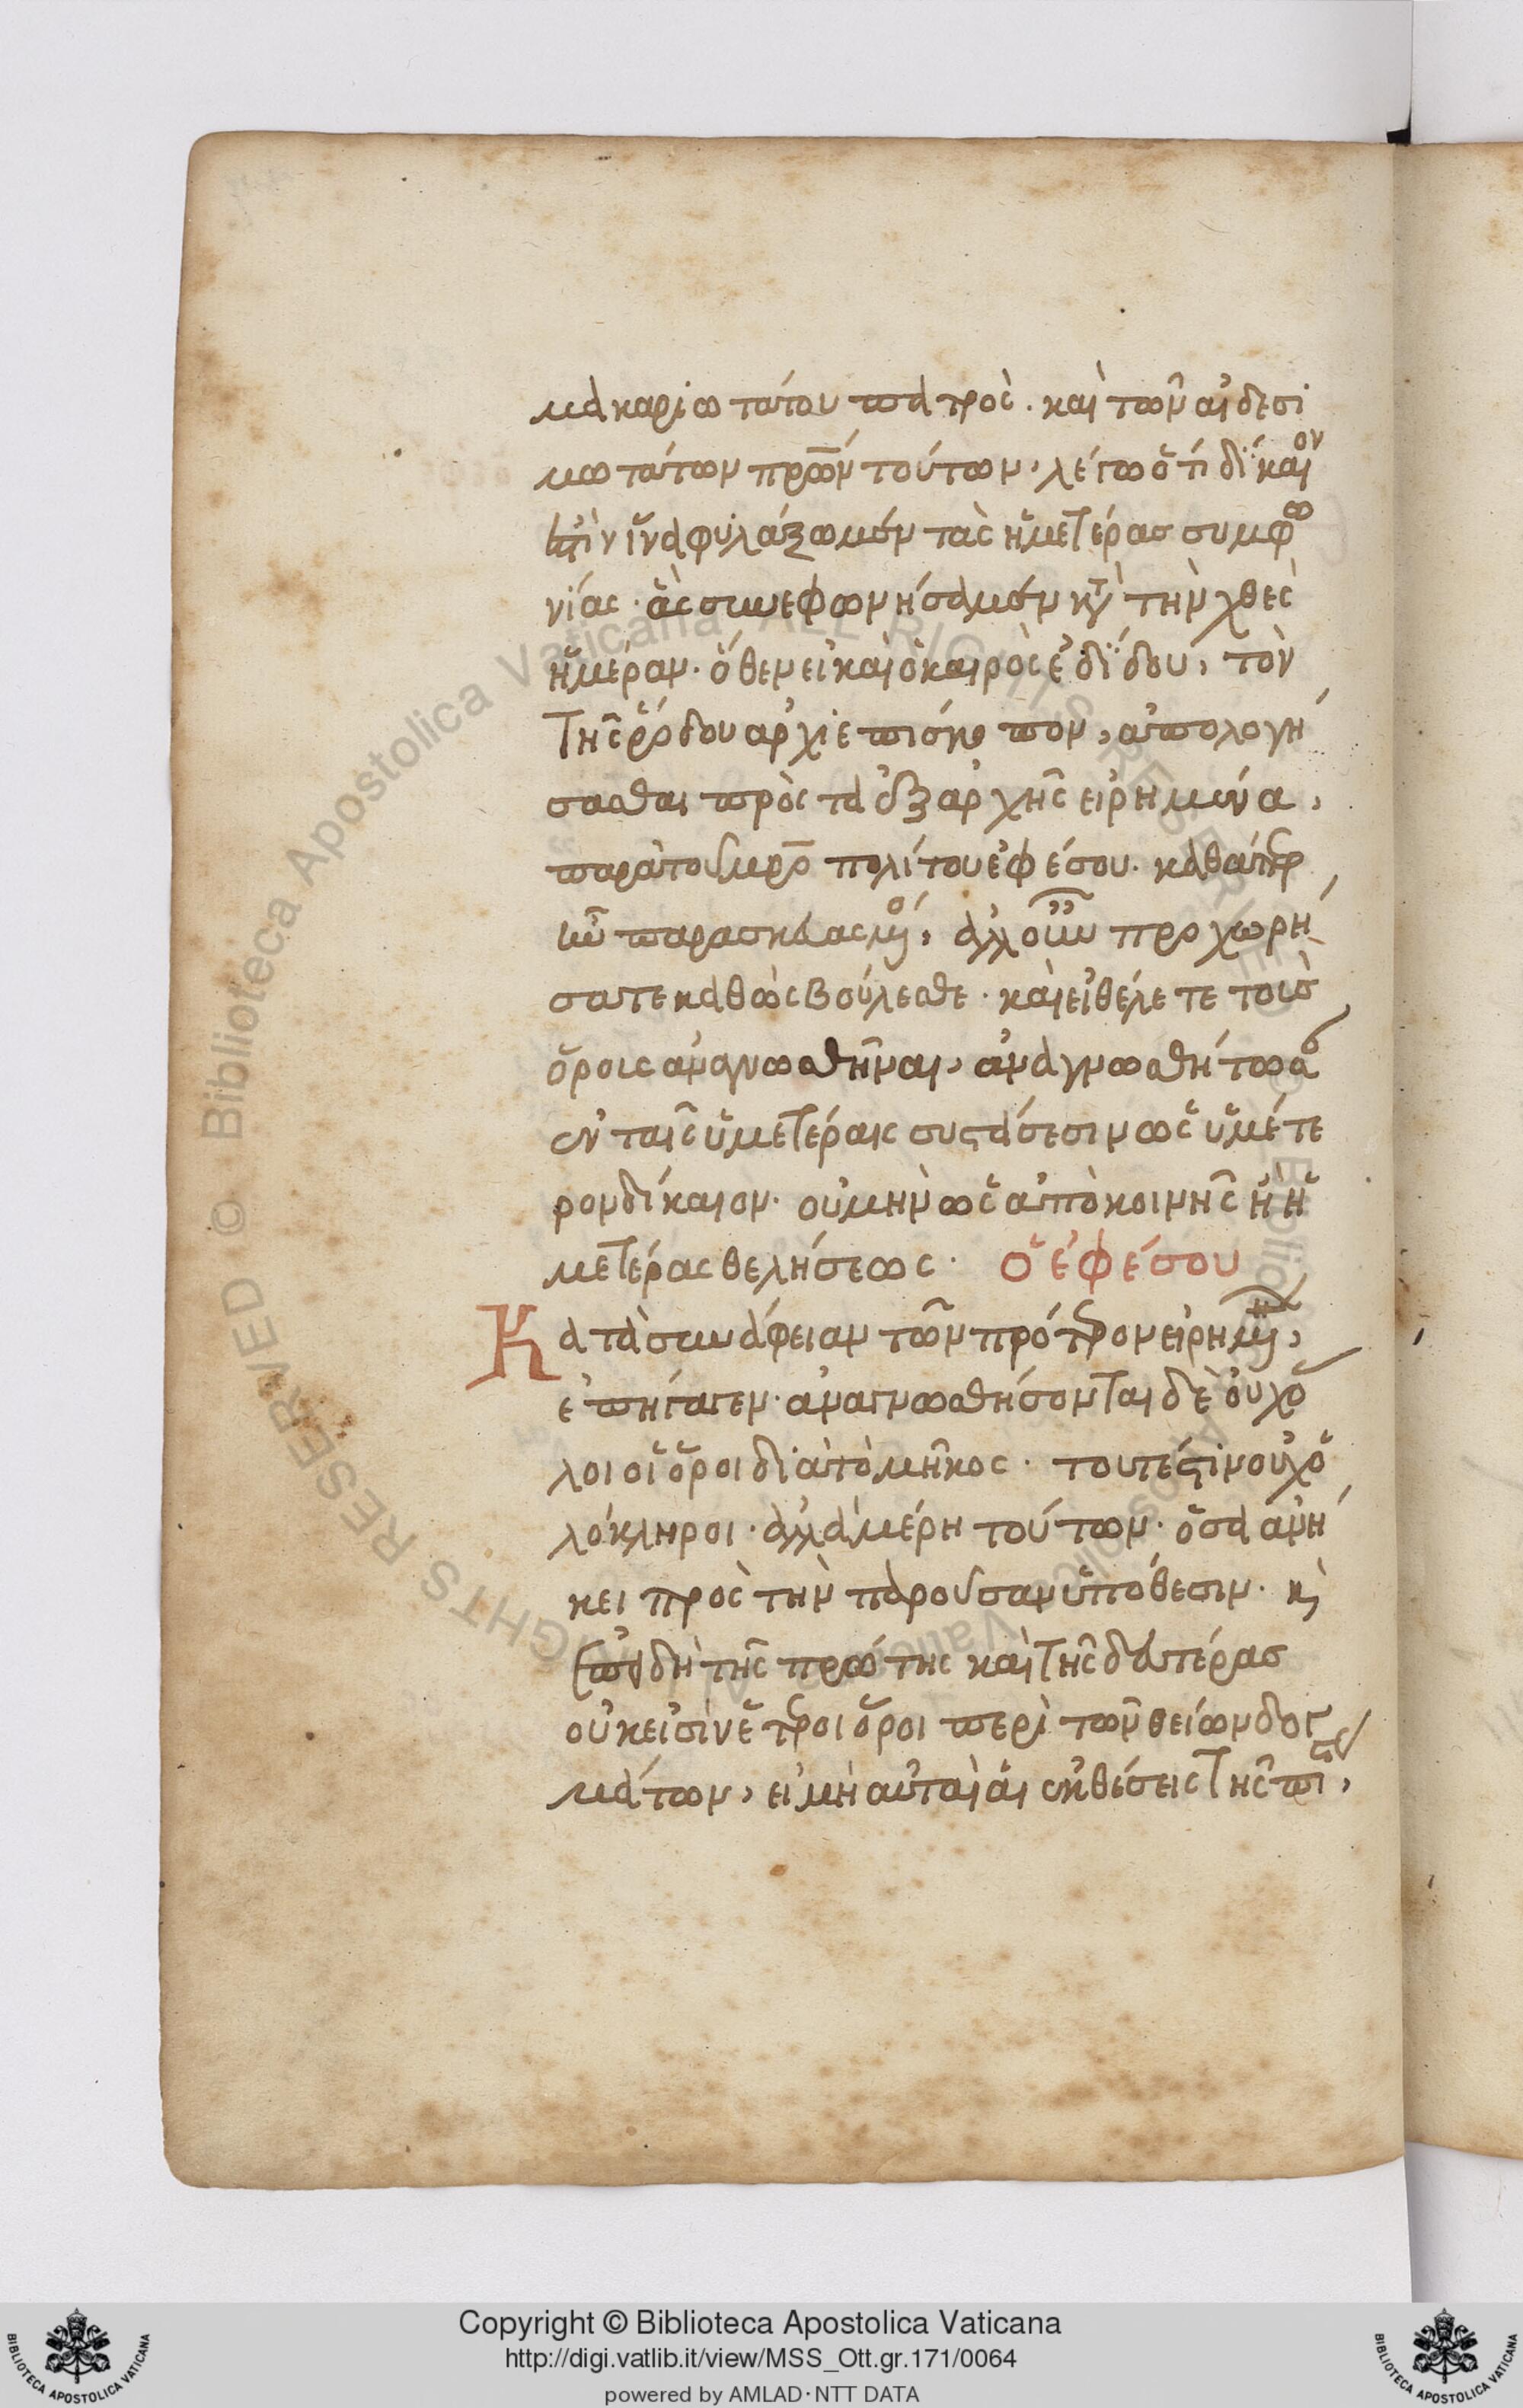 μακαριωτάτου πατρὸς. καὶ τῶν αἰδεσι
μωτάτων πρων τούτων, λέγω ὅτι δίκαιον
ἐστὶν ἵνα φυλάξωμεν τὰς ἡμετέρας συμφω
νίας. ἃς συνεφωνήσαμεν κτὰ τὴν χθὲς
ἡμέραν. ὅθεν εἰ καὶ ὁ καιρὸς ἐδίδου, τὸν
τῆς ῥόδου ἀρχιεπίσκοπον, ἀπολογή
σασθαι πρὸς τὰ ἐξ ἀρχῆς εἰρημένα,
παρὰ τοῦ μρο πολίτου ἐφέσου. καθάπερ
ἦν παρασκευασμένος, ἀλλ' οὖν προχωρή
σατε καθὼς βούλεσθε. καὶ εἰ θέλετε τοὺς
ὅροις ἀναγνωσθῆναι, ἀναγνωσθήτωσαν
ἐν ταῖς ὑμετέραις συστάσεσιν ὡς ὑμέτε
ρον δίκαιον. οὐ μὴν ὡς ἀπὸ κοινῆς ἢ ἡ
μετέρας θελήσεως. ὁ ἐφέσου
Κατὰ συνάφειαν τῶν πρότερον εἰρημένων,
ἐπήγαγεν. ἀναγνωσθήσονται δὲ οὐχ ὅ
λοι οἱ ὅροι διὰ τὸ μῆκος. τουτέστιν οὐχ ὁ
λόκληροι. ἀλλὰ μέρη τούτων. ὅσα ἀνή
κει πρὸς τὴν παροῦσαν ὑπόθεσιν. κὶ
ἐπειδὴ τῆς πρώτης καὶ τῆς δευτέρας
οὐκ εἰσὶν ἕτεροι ὅροι περὶ τῶν θείων δογ
μάτων, εἰ μὴ αὐταὶ αἱ ἐκθέσεις τῆς πίστεως,
Copyright © Biblioteca Apostolica Vaticana
http://digi.vatlib.it/view/MSS_Ott.gr.171/0064
powered by AMLAD·NTT DATA